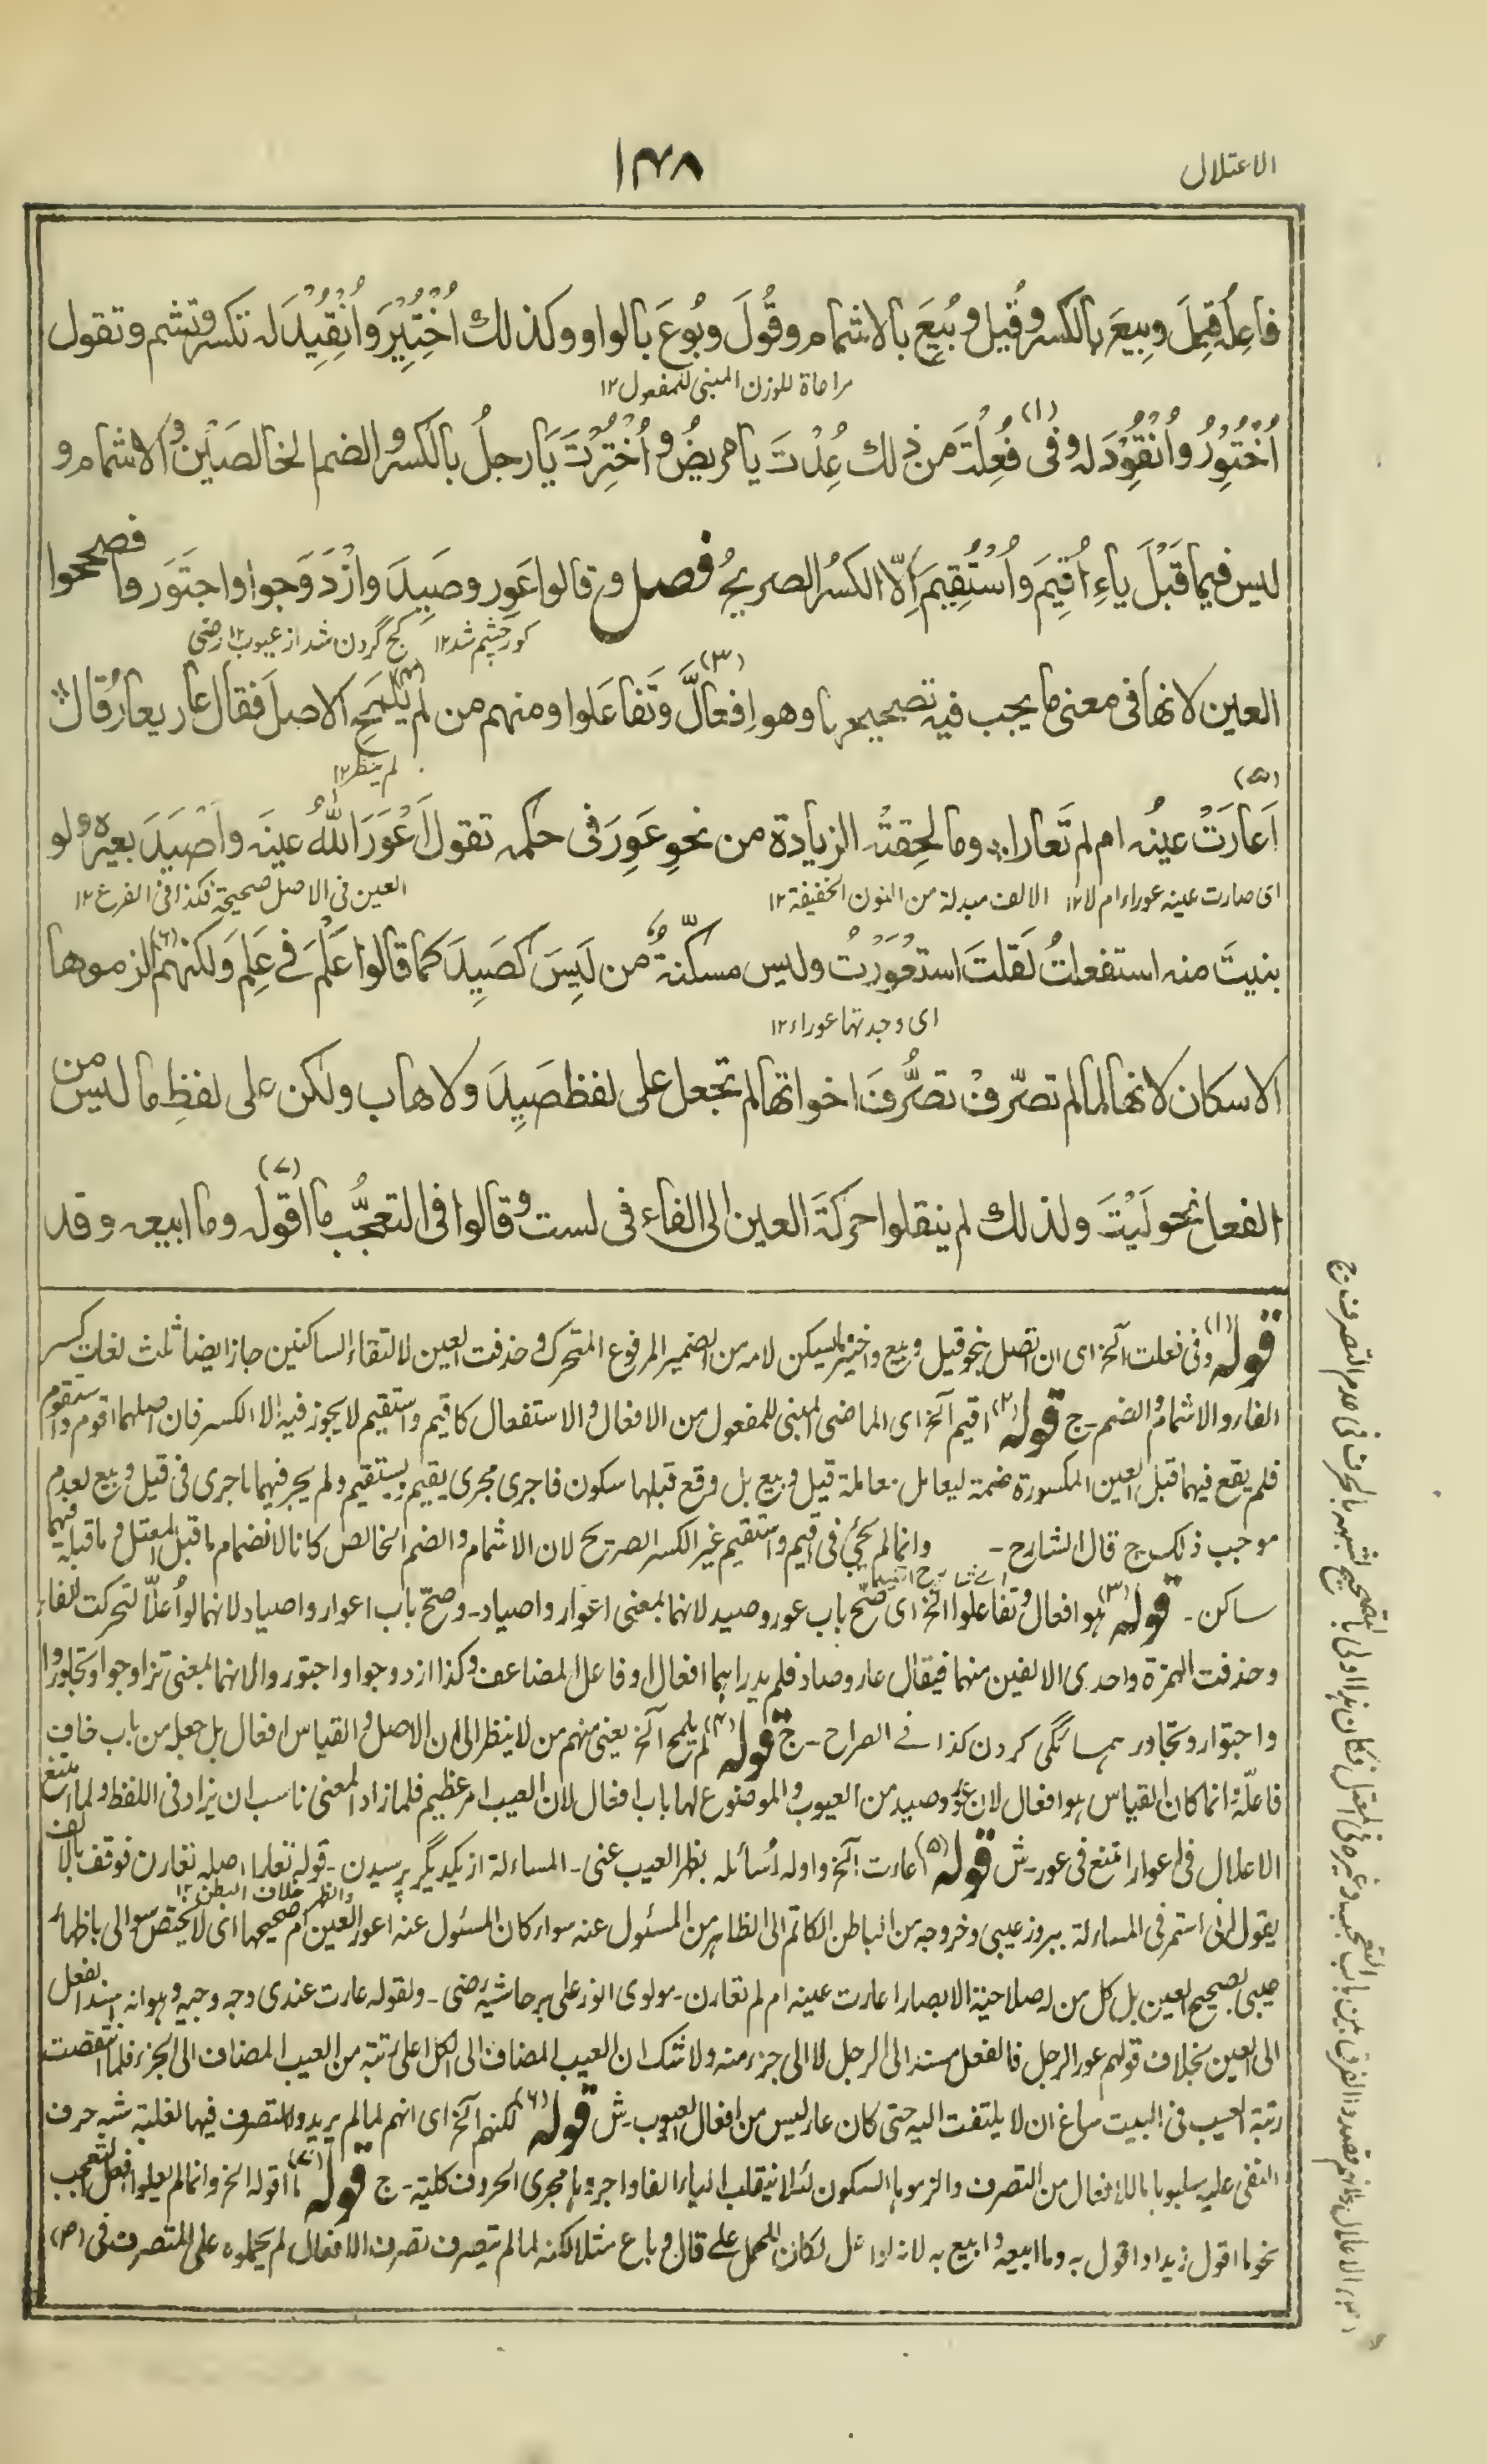 الاعتلال
١٤٨
فاعِلُه قِيلَ وبِيعَ بالكسر وقُيل وبُيعَ بالاشمام وقُولَ وبُوعَ بالواو وكذلك اُخْتِيْرَ واُنْقِيْدَ له تكسر وتشم وتقول
مراعاة للوزن المبنى للمفعول ١٢
اُخْتُوِرُ واُنْقُوْدَ له وفى (١) فُعِلْتَ من ذلك عِدْتَ يا مريضُ واُخْتِرْتَ يا رجلُ بالكسر والضم الخالصَيْن والاشمام و
ليس فيما قَبْلَ ياءِ اُقِيْمَ واُسْتُقِيْمَ اِلّا الكسرُ الصريحُ فصل وقالوا عَوِر وصَيِدَ وازْدَوَجوا واجتوَروا فصححوا
كور چشم شد ١٢ كج گردن شد از عيوب ١٢ رضى
العين لانها فى معنى ما يجب فيه تصحيحها وهو (٣) اِفعالَّ وتَفاعَلوا ومنهم من لم (٤) يَلْمَحِ الاصلَ فقال عار يعارُ قال
لم ينظر ١٢
(٥)
اَعارَتْ عينُه ام لم تَعارا وما لحِقتْه الزيادة من نحوِ عَوِرَ فى حكمه تقول اَعْوَرَ اللهُ عينَه واَصْيَدَ بعيرَه ولو
اى صارت عينه عوراء ام لا ١٢ الالف مبدلة من النون الخفيفة ١٢ العين فى الاصل صحيحة فكذا فى الفرع ١٢
بنيتَ منه استفعلتُ لَقلتَ استعْوَرْتُ وليس مسكّنةٌ من لَيِسَ كصَيِدَ كما قالوا عَلْمَ فى عَلِمَ ولكنهم (٦) الزموها
اى وجدتها عوراء ١٢
الاسكان لانها لما لم تصرّفْ تصرُّفَ اخواتها لم تجعل على لفظ صَيِدَ ولا هاب ولكن على لفظِ ما ليس من
الفعل نحو لَيْتَ ولذلك لم ينقلوا حركَةَ العين الى الفاء فى لست وقالوا فى التعجُّب ما (٧) اَقوله وما ابيعه وقد
قوله (١) وفى فعلت الخ اى ان اتصل بنحو قيل وبيع واختير ما يسكن لامه من الضمير المرفوع المتحرك وحذفت العين لالتقاء الساكنين جاز ايضا ثلث لغات كسر
الفاء والاشمام والضم ـ ج قوله (٢) اقيم الخ اى الماضى المبنى للمفعول من الافعال والاستفعال كاقيم واستقيم لا يجوز فيه الا الكسر فان اصلهما اقوم واستقوم
فلم يقع فيهما قبل العين المكسورة ضمة ليعامل معاملة قيل وبيع بل وقع قبلها سكون فاجرى مجرى يقيم ويستقيم ولم يجر فيهما ما جرى فى قيل وبيع لعدم
موجب ذلك ج قال الشارح ـ وانما لم يجئ فى اقيم واستقيم غير الكسر الصريح لان الاشمام والضم الخالص كانا لانضمام ما قبل المعتل وما قبله فيهما
ساكن ـ قوله (٣) هو افعال وتفاعلوا الخ اى صحّ باب عور وصيد لانهما بمعنى اعوار واصياد ـ وصحّ باب اعوار واصياد لانهما لو اُعلّا لتحركت الفاء
وحذفت الهمزة واحدى الالفين منهما فيقال عار وصاد فلم يدر اهما افعال او فاعل المضاعف وكذا ازدوجوا واجتوروا لانهما بمعنى تزاوجوا وتجاوروا
واجتوار وتجاور همسائگى كردن كذا فى الصراح ـ ج قوله (٤) لم يلمح الخ يعنى منهم من لا ينظر الى ان الاصل والقياس افعال بل جعله من باب خاف
فاعلّه وانما كان القياس هو افعال لان عور وصيد من العيوب والموضوع لها باب افعال لان العيب امر عظيم فلما زاد المعنى ناسب ان يزاد فى اللفظ ولما امتنع
الاعلال فى اعوار امتنع فى عور ـ ش قوله (٥) اعارت الخ واوله اُسائله بظهر العيب عنى ـ المساءلة از يكديگر پرسيدن ـ قوله تعارا اصله تعارن فوقف بالالف
يقول انى استمر فى المساءلة ببروز عيبى وخروجه من الباطن الكاتم الى الظاهر من المسئول عنه سواء كان المسئول عنه اعور العين ام صحيحها اى لا يختص سوالى باظهار
عيبى بصحيح العين بل كل من له صلاحية الابصار اعارت عينه ام لم تعارن ـ مولوى انور على بر حاشيه رضى ـ ولقوله عارت عندى وجه وجيه وهو انه اسند الفعل
الى العين بخلاف قولهم عور الرجل فالفعل مسند الى الرجل لا الى جزء منه ولا شك ان العيب المضاف الى الكل اعلى رتبة من العيب المضاف الى الجزء فلما انتقصت
رتبة العيب فى البيت ساغ ان لا يلتفت اليه حتى كان عار ليس من افعال العيوب ـ ش قوله (٦) لكنهم الخ اى انهم لما لم يريدوا التصرف فيها لغلبة شبه حرف
النفى عليه سلبوها ما للافعال من التصرف والزموها السكون لئلا ينقلب الياء الفا واجروها مجرى الحروف كليته ـ ج قوله (٧) ما اقوله الخ وانما لم يعلوا فعل التعجب
نحو ما اقول زيدا واقول به وما ابيعه وابيع به لانه لو اعل لكان للحمل على قال وباع مثلا لكنه لما لم يتصرف تصرف الافعال لم يحملوه على المتصرف فى (ص)